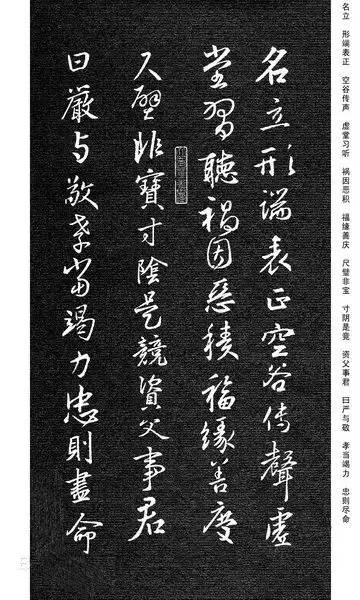 名立 形端表正 空谷传声 虚堂习听 祸因恶积 福缘善庆 尺璧非宝 寸阴是竟 资父事君 曰严与敬 孝当竭力 忠则尽命
名立形端表正空谷传聲虛
堂習聽禍因惡積福緣善慶
尺璧非寶寸陰是競資父事君
曰嚴与敬孝當竭力忠則盡命